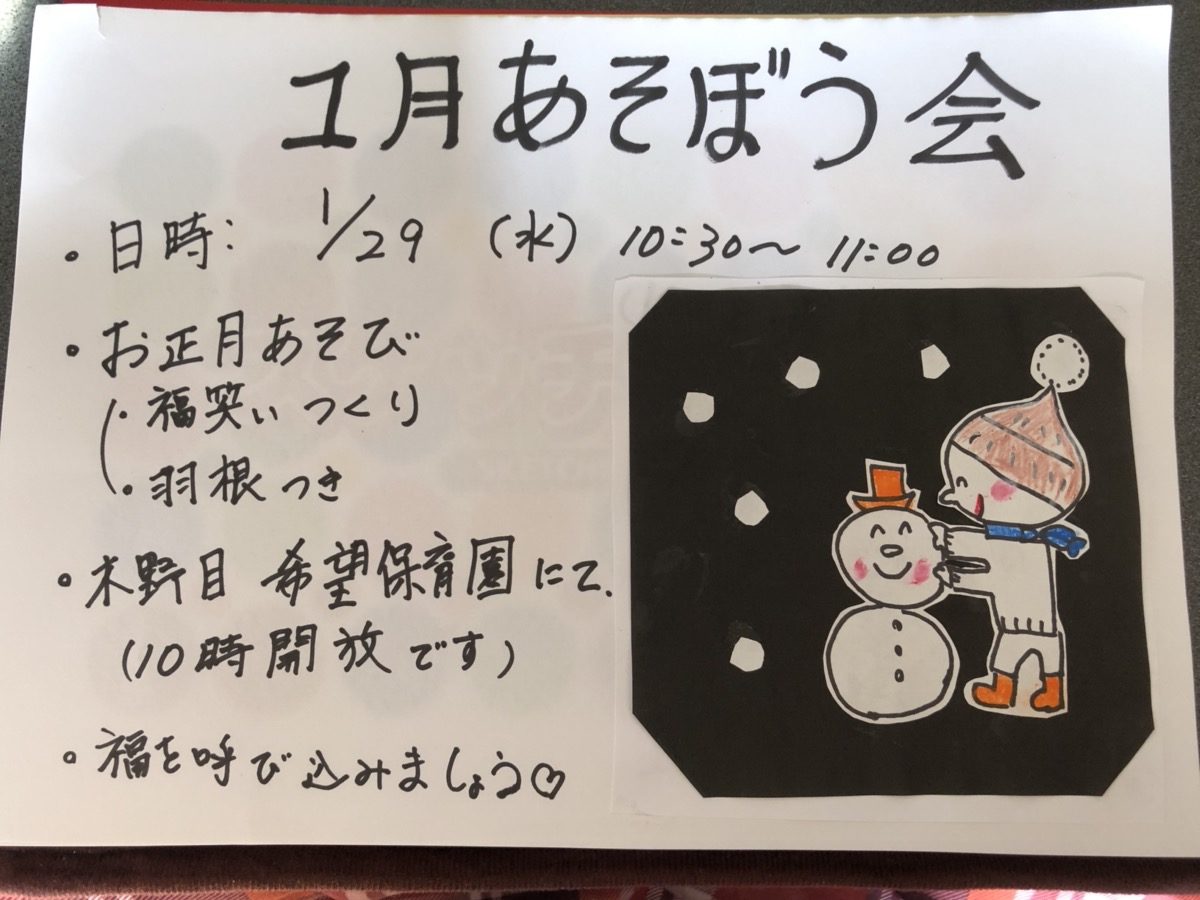 1月あそぼう会
・日時: 1/29 (水) 10:30〜11:00
・お正月あそび
・福笑いつくり
・羽根つき
・木野目 希望保育園にて.
(10時開放です)
・福を呼び込みましょう♡